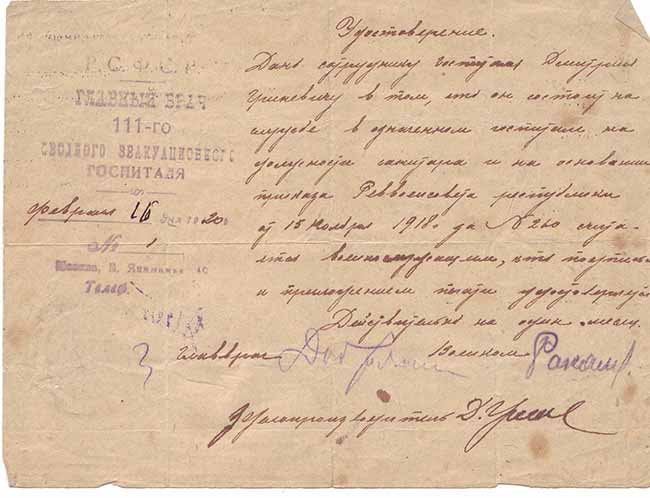 Р. С. Ф. С. Р.
ГЛАВНЫЙ ВРАЧ
111-го
СВОДНОГО ЭВАКУАЦИОННОГО
ГОСПИТАЛЯ
Февраля 16 дня 1920 г
№ 1
Москва, Якиманка 40
Телеф.
Удостоверение.
Дано сотруднику госпиталя Дмитрию
Гриневичу в том, что он состоит на
службе в означенном госпитале на
должности санитара и на основании
приказа Реввоенсовета республики
от 15 Ноября 1918 г за № 260 счита-
ется военнослужащим, что подписью
и приложением печати удостоверяется
Действительно на один месяц
Главврач Военком
Делопроизводитель Д.